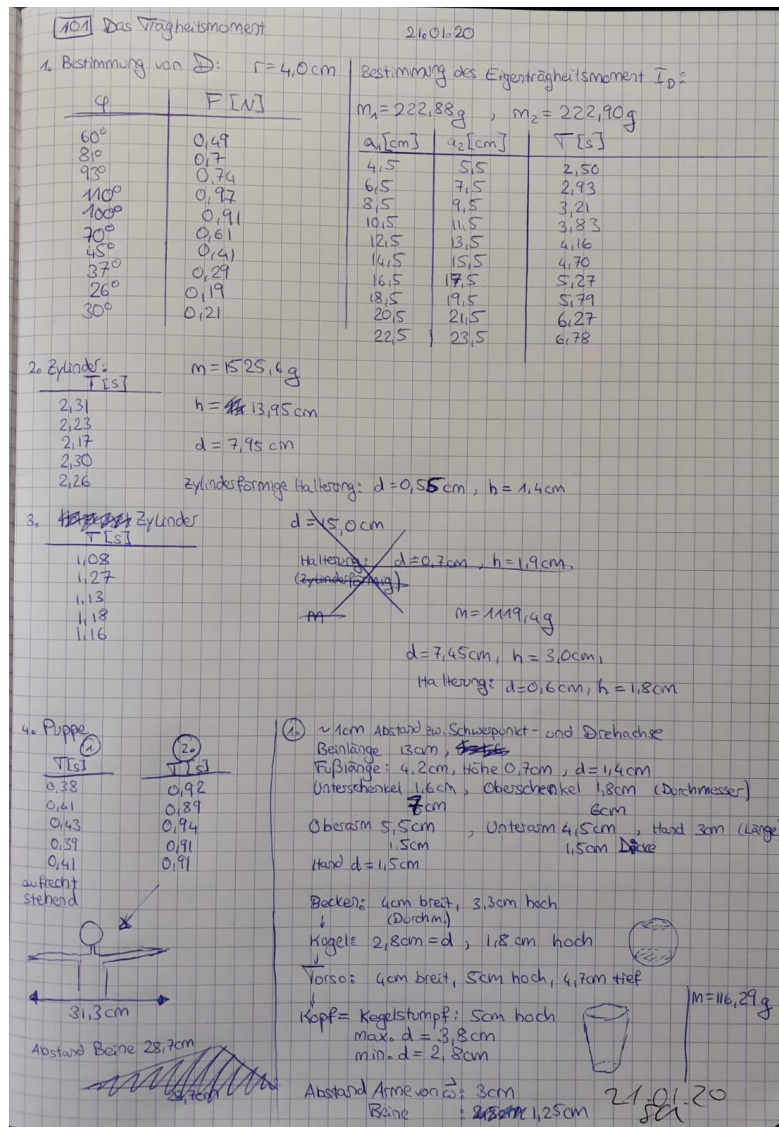 101 Das Trägheitsmoment 21.01.20
1. Bestimmung von D: r=4,0cm
φ F [N]
60° 0,49
81° 0,7
93° 0,74
110° 0,97
100° 0,91
70° 0,61
45° 0,41
37° 0,29
26° 0,19
30° 0,21
Bestimmung des Eigenträgheitsmoment I_D:
m₁=222,88g , m₂=222,90g
a₁[cm] a₂[cm] T[s]
4,5 5,5 2,50
6,5 7,5 2,93
8,5 9,5 3,21
10,5 11,5 3,83
12,5 13,5 4,16
14,5 15,5 4,70
16,5 17,5 5,27
18,5 19,5 5,79
20,5 21,5 6,27
22,5 23,5 6,78
2. Zylinder: m=1525,6g
T[s]
2,31 h= 13,95cm
2,23
2,17 d=7,95cm
2,30
2,26 Zylinderförmige Halterung: d=0,55cm, h=1,4cm
3. Zylinder d=15,0cm
T[s]
1,08 Halterung: d=0,7cm, h=1,9cm.
1,27 (Zylinderförmig)
1,13
1,18 m m=1119,4g
1,16
d=7,45cm, h=3,0cm,
Halterung: d=0,6cm, h=1,8cm
4. Puppe
1 2.
T[s] T[s]
0,38 0,92
0,41 0,89
0,43 0,94
0,39 0,91
0,41 0,91
aufrecht
stehend
31,3cm
Abstand Beine 28,7cm
28,7cm
1. ~1cm Abstand zw. Schwerpunkt- und Drehachse
Beinlänge 13cm,
Fußlänge: 4,2cm, Höhe 0,7cm, d=1,4cm
Unterschenkel 1,6cm, Oberschenkel 1,8cm (Durchmesser)
7cm 6cm
Oberarm 5,5cm , Unterarm 4,5cm , Hand 3cm (Länge
1,5cm 1,5cm Dicke
Hand d=1,5cm
Becken: 4cm breit, 3,3cm hoch
↓ (Durchm.)
Kugel: 2,8cm=d, 1,8cm hoch
↓
Torso: 4cm breit, 5cm hoch, 4,7cm tief
↓
Kopf= Kegelstumpf: 5cm hoch
max. d=3,8cm
min. d=2,8cm
m=116,29g
Abstand Arme von ω⃗: 3cm
Beine : 1,25cm
21.01.20